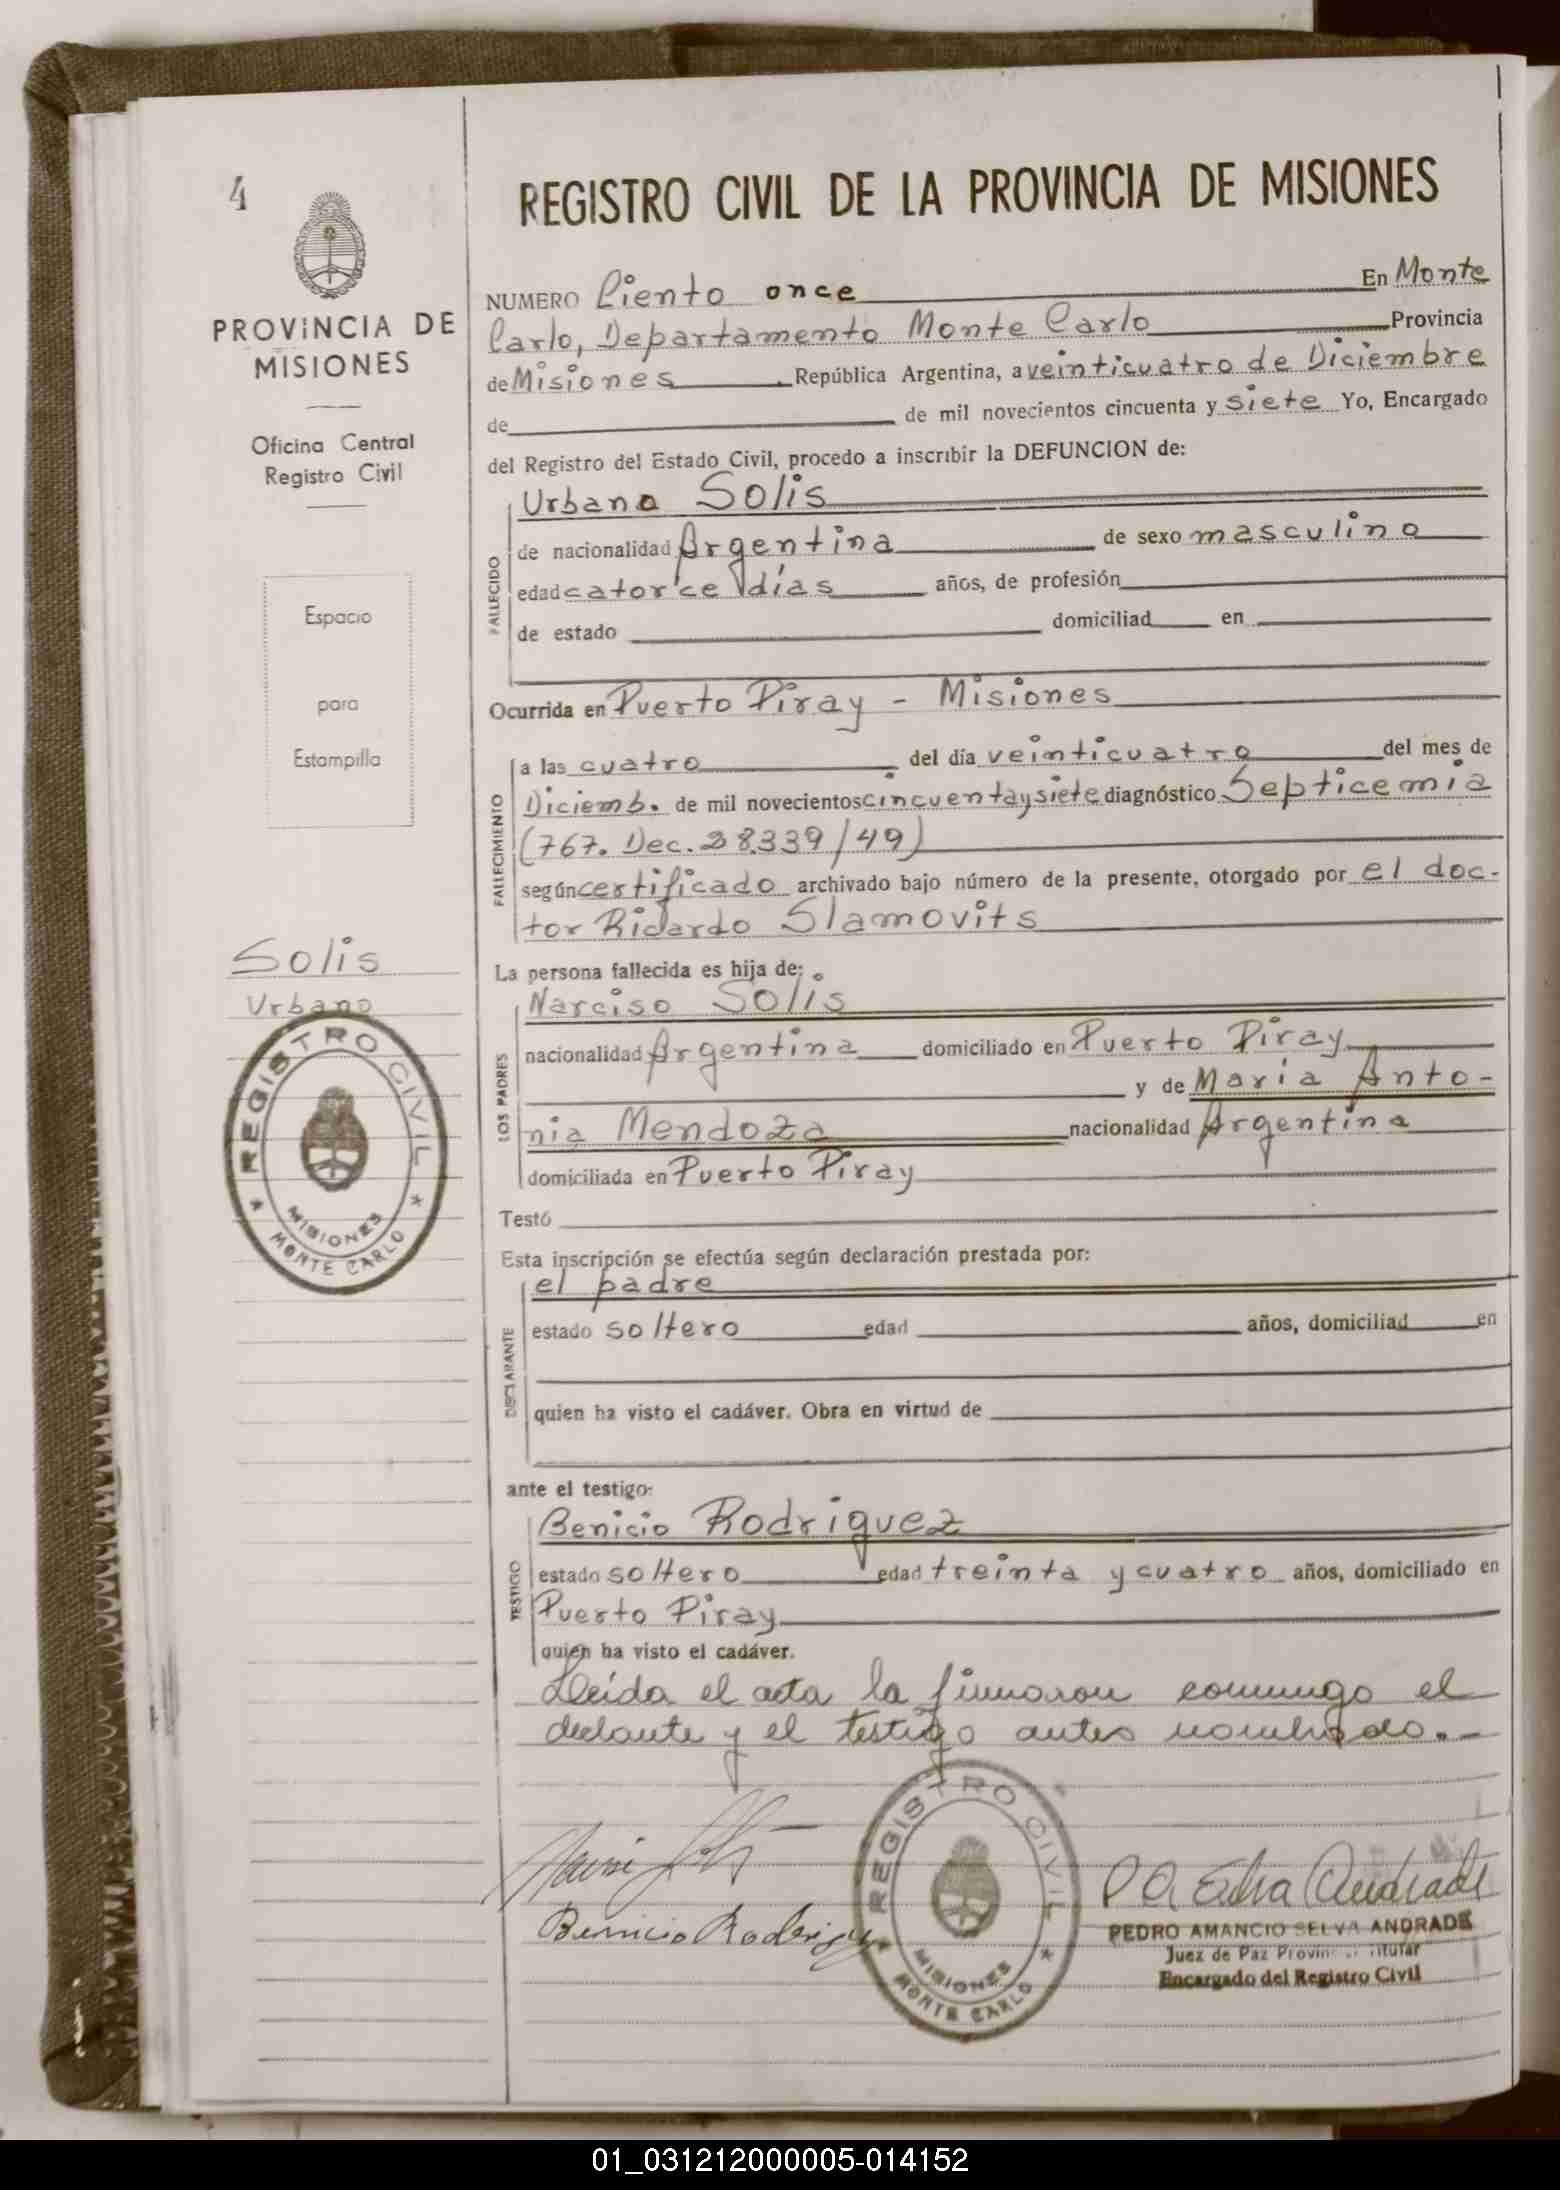 4
PROVINCIA DE
MISIONES
Oficina Central
Registro Civil
Espacio
para
Estampilla
Solis
Urbano
REGISTRO CIVIL
MISIONES
MONTE CARLO
REGISTRO CIVIL DE LA PROVINCIA DE MISIONES
NUMERO Ciento once En Monte
Carlo, Departamento Monte Carlo Provincia
de Misiones República Argentina, a veinticuatro de Diciembre
de de mil novecientos cincuenta y siete Yo, Encargado
del Registro del Estado Civil, procedo a inscribir la DEFUNCION de:
FALLECIDO
Urbano Solis
de nacionalidad Argentina de sexo masculino
edad catorce días años, de profesión
de estado domiciliad en
Ocurrida en Puerto Piray - Misiones
FALLECIMIENTO
a las cuatro del día veinticuatro del mes de
Diciemb. de mil novecientos cincuentaysiete diagnóstico Septicemia
(767. Dec. 28.339/49)
según certificado archivado bajo número de la presente, otorgado por el doc-
tor Ricardo Slamovits
La persona fallecida es hija de:
LOS PADRES
Narciso Solis
nacionalidad Argentina domiciliado en Puerto Piray
y de Maria Anto-
nia Mendoza nacionalidad Argentina
domiciliada en Puerto Piray
Testó
Esta inscripción se efectúa según declaración prestada por:
DECLARANTE
el padre
estado soltero edad años, domiciliad en
quien ha visto el cadáver. Obra en virtud de
ante el testigo:
TESTIGO
Benicio Rodriguez
estado soltero edad treinta y cuatro años, domiciliado en
Puerto Piray
quien ha visto el cadáver.
Leída el acta la firmaron conmigo el
declante y el testigo antes nombrado.-
Benicio Rodriguez
REGISTRO CIVIL
MISIONES
MONTE CARLO
P A Selva Andrade
PEDRO AMANCIO SELVA ANDRADE
Juez de Paz Titular
Encargado del Registro Civil
01_031212000005-014152